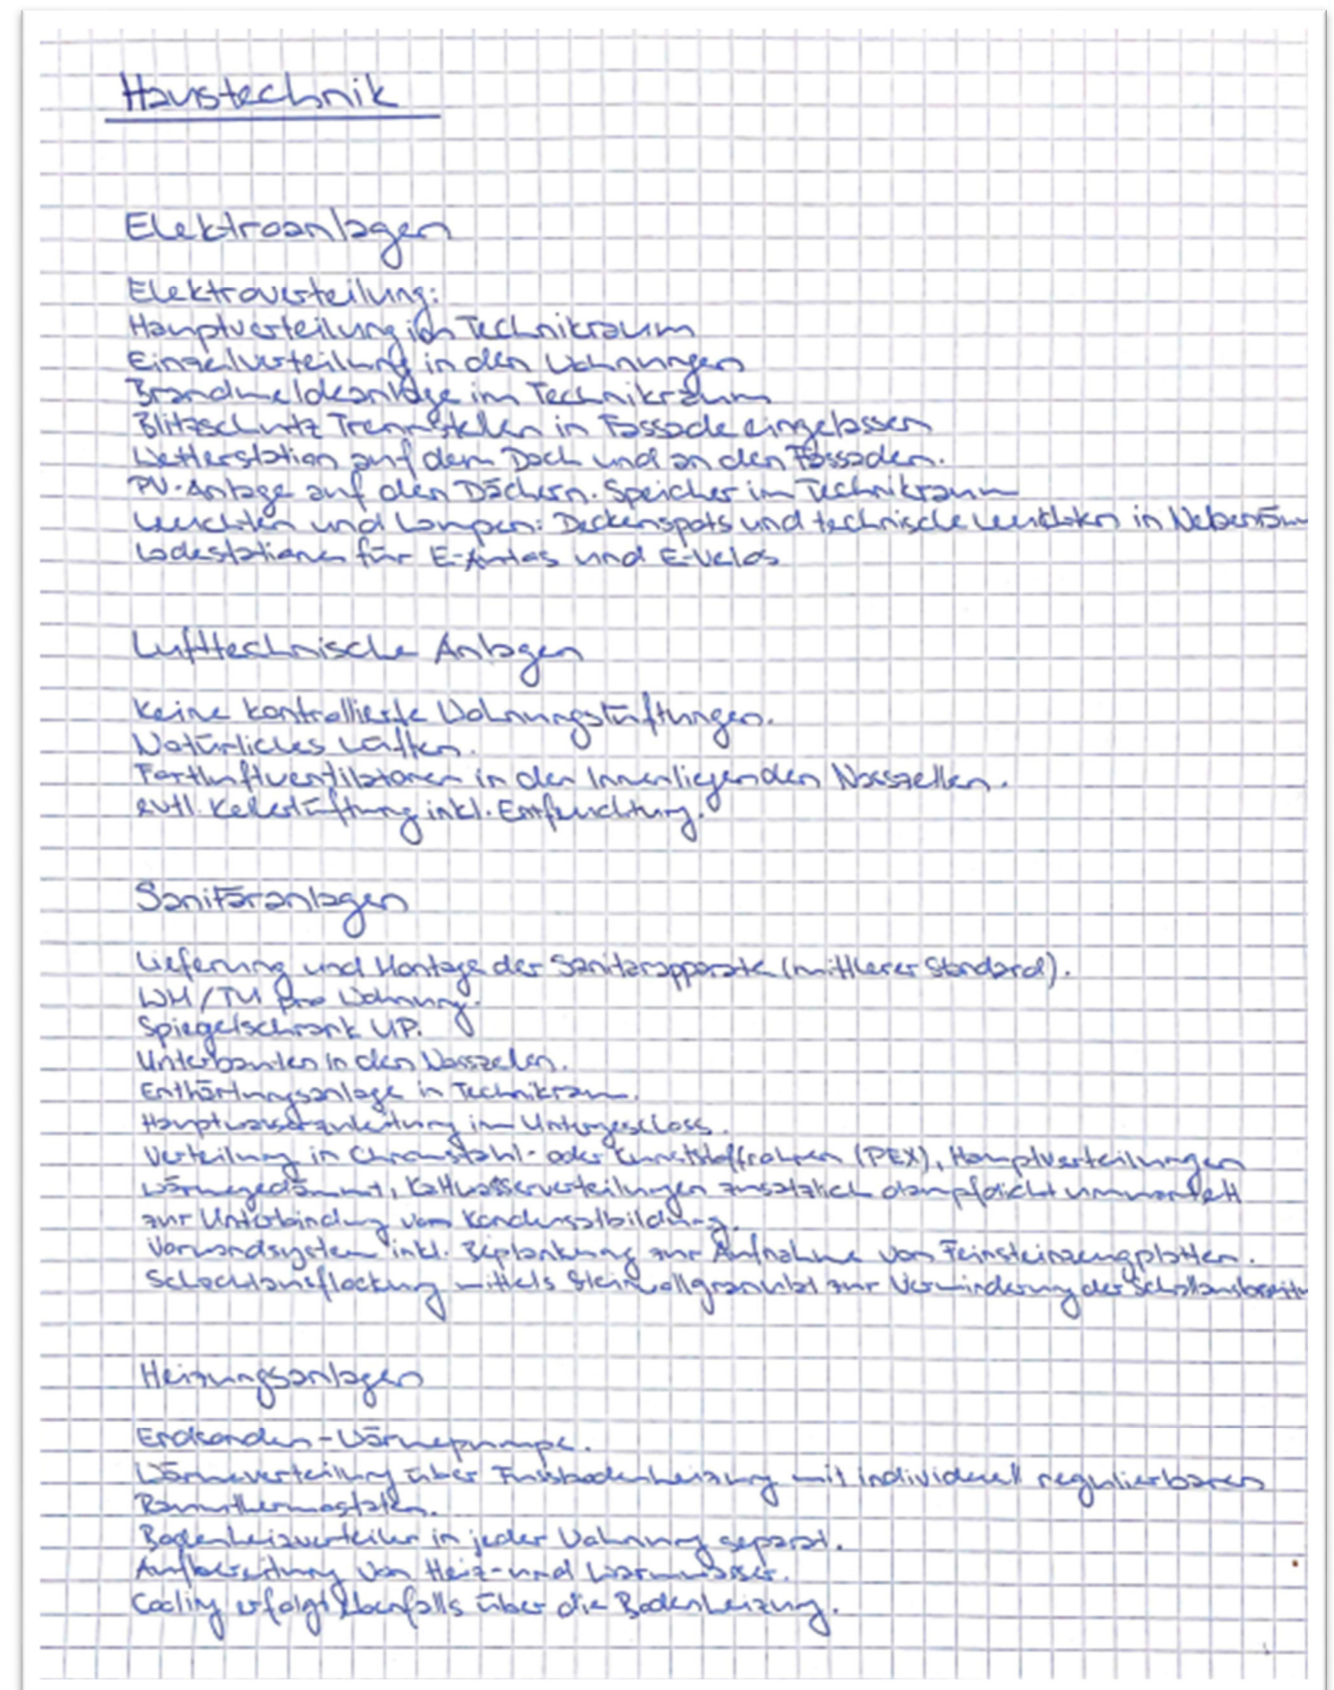 Haustechnik
Elektroanlagen
Elektroverteilung:
Hauptverteilung im Technikraum
Einzelverteilung in den Wohnungen
Brandmeldeanlage im Technikraum
Blitzschutz Trennstellen in Fassade eingelassen
Wetterstation auf dem Dach und an den Fassaden.
PV-Anlage auf den Dächern. Speicher im Technikraum
Leuchten und Lampen: Deckenspots und technische Leuchten in Nebenräum
Ladestationen für E-Autos und E-Velos
Lufttechnische Anlagen
Keine kontrollierte Wohnungslüftungen.
Natürliches Lüften.
Fortluftventilatoren in den Innenliegenden Nasszellen.
evtl. Kellerlüftung inkl. Entfeuchtung.
Sanitäranlagen
Lieferung und Montage der Sanitärapparate (mittlerer Standard).
WM/TM pro Wohnung.
Spiegelschrank UP.
Unterbauten in den Nasszellen.
Enthärtungsanlage in Technikraum.
Hauptwasserzuleitung im Untergeschoss.
Verteilung in Chromstahl- oder Kunststoffrohren (PEX), Hauptverteilungen
wärmegedämmt, Kaltwasserverteilungen zusätzlich dampfdicht ummantelt
zur Unterbindung von Kondensatbildung.
Vorwandsystem inkl. Beplankung zur Aufnahme von Feinsteinzeugplatten.
Schachtausflockung mittels Steinwollgranulat zur Verminderung der Schallausbreitu
Heizungsanlagen
Erdsonden-Wärmepumpe.
Wärmeverteilung über Fussbodenheizung mit individuell regulierbaren
Raumthermostaten.
Bodenheizverteiler in jeder Wohnung separat.
Aufbereitung von Heiz- und Warmwasser.
Cooling erfolgt ebenfalls über die Bodenheizung.